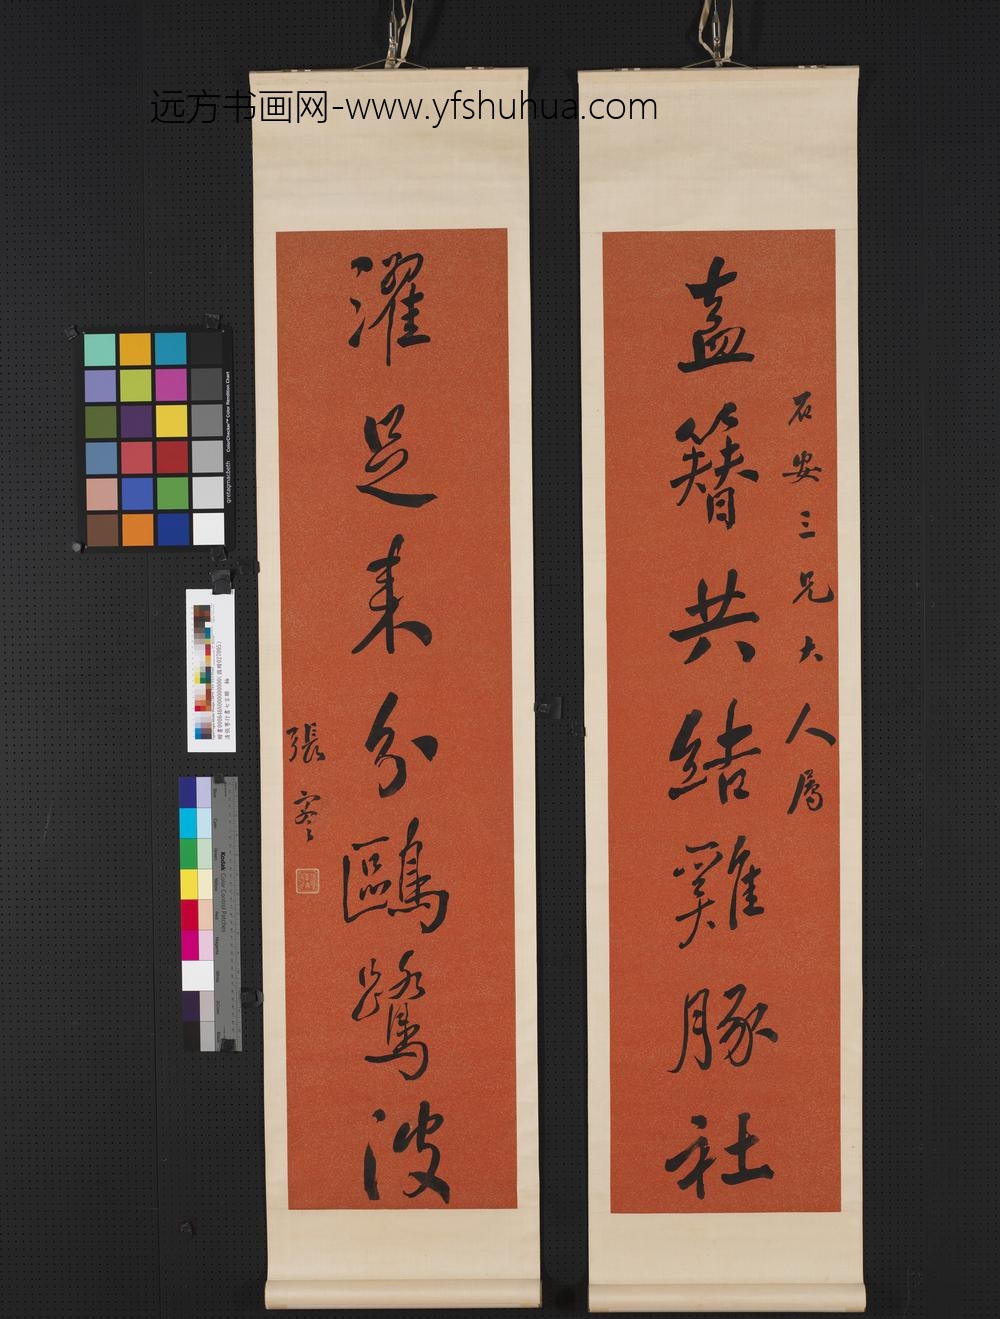 远方书画网-www.yfshuhua.com
盍簪共結雞豚社
石安三兄大人属
濯足來分鷗鷺波
張謇
ColorChecker™ Color Rendition Chart
gretagmacbeth
Kodak Color Control Patches